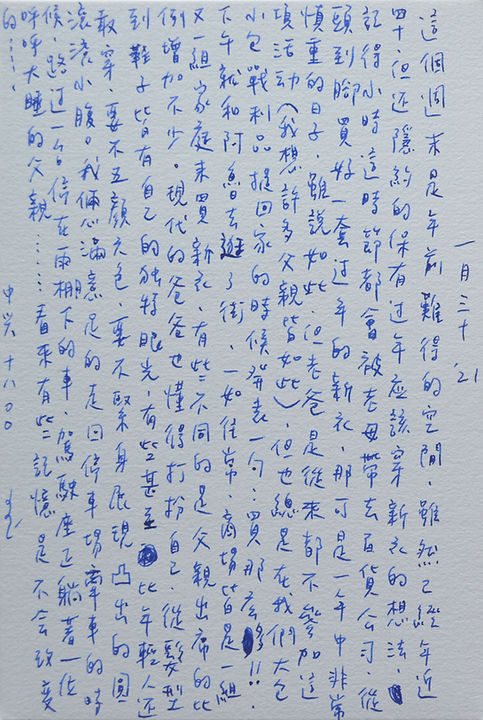 一月三十 '21
這個週末是年前難得的空閒，雖然已經年近
四十，但还隱約的保有过年应該穿新衣的想法，
記得小時這時節都會被老母帶去百貨公司，從
頭到腳買好一套过年的新衣，那可是一年中非常
慎重的日子，雖說如此，但老爸是從來都不參加這
項活动（我想許多父親皆如此），但也總是在我們大包
小包戰利品提回家的時候發表一句：買那么多!!
下午就和阿魯去逛了街，一如往常，商場皆是一組
又一組家庭來買新衣，有些不同的是父親出席的比
例增加不少。現代的爸爸也懂得打扮自己，從髮型
到鞋子皆有自己的独特眼光，有些甚至比年輕人还
敢穿，要不五顏六色，要不緊身展現凸出的圓
滾滾小腹。我倆心滿意足的走回停車場牽車的時
候，路过一台停在雨棚下的車，駕駛座正躺著一位
呼呼大睡的父親……看來有些記憶是不会改变
的……
中兴 十八:00